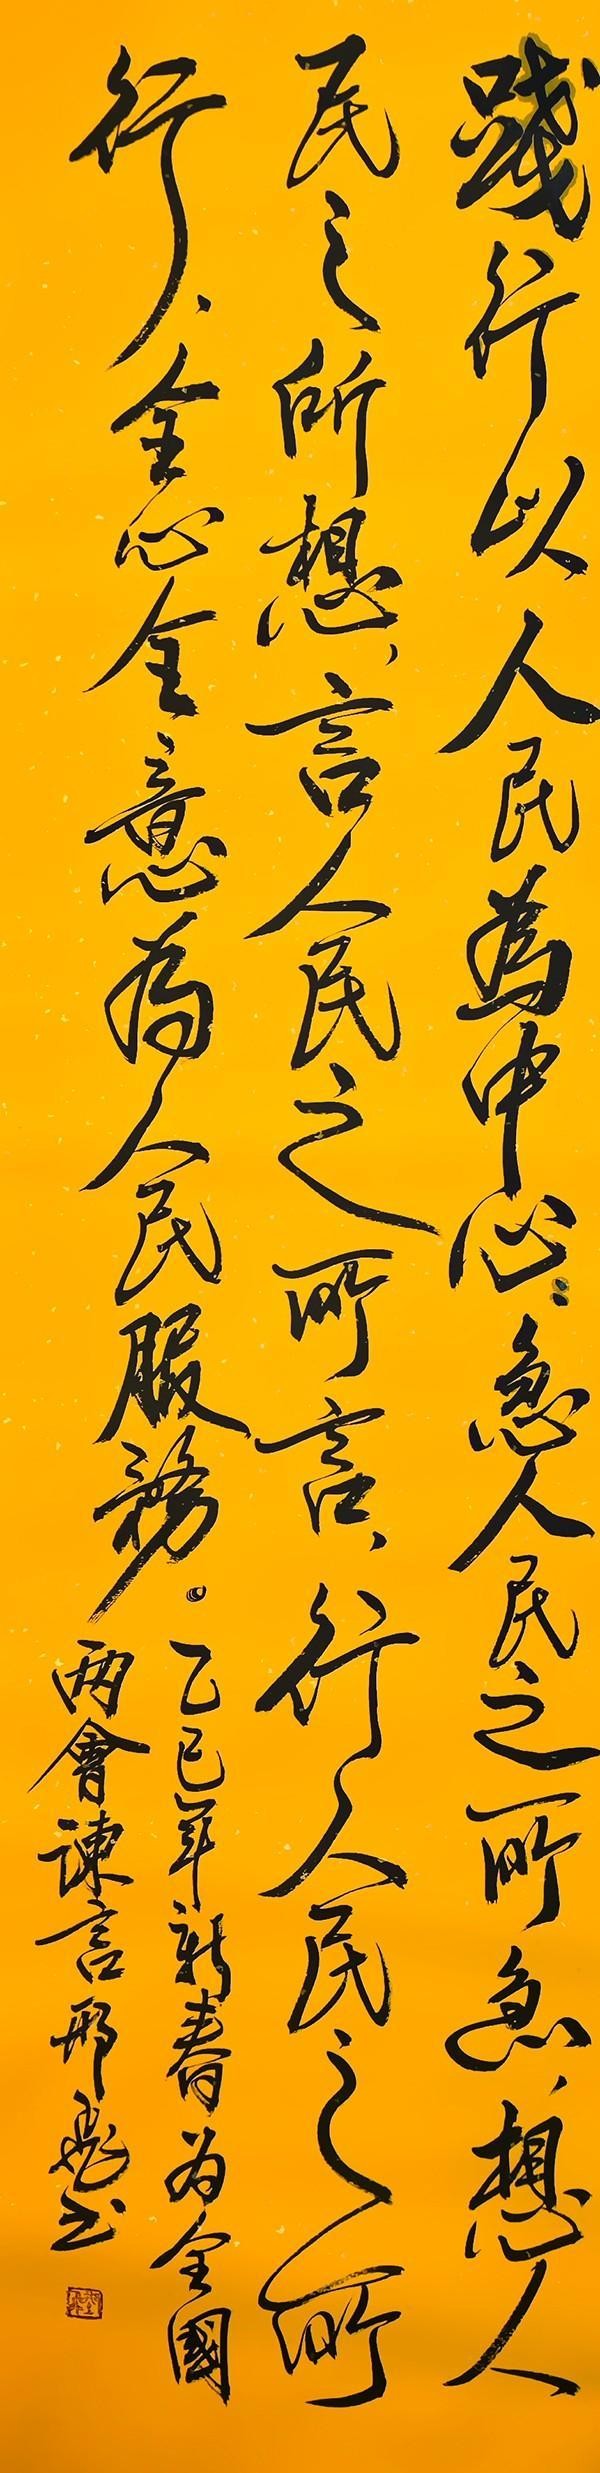 踐行以人民為中心：急人民之所急、想人
民之所想、言人民之所言、行人民之所
行、全心全意為人民服務。
乙巳年新春为全國
两會諫言邢飛书